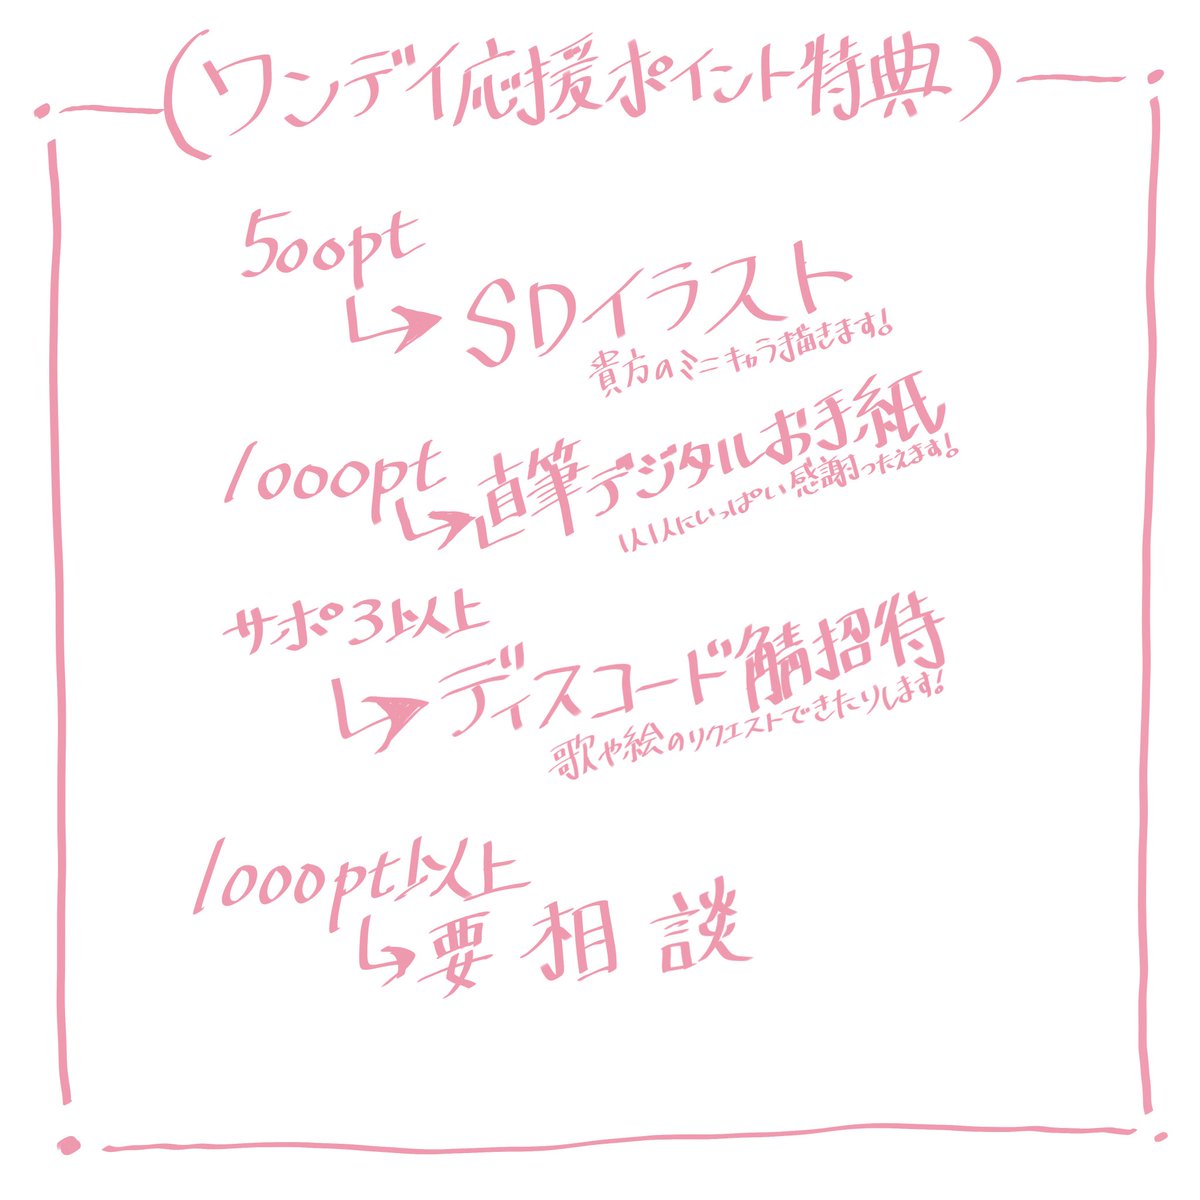 (ワンデイ応援ポイント特典)
500pt
SDイラスト
貴方のミニキャラ描きます!
1000pt
直筆デジタルお手紙
1人1人にいっぱい感謝つたえます!
サポ3以上
ディスコード鯖招待
歌や絵のリクエストできたりします!
1000pt以上
要相談